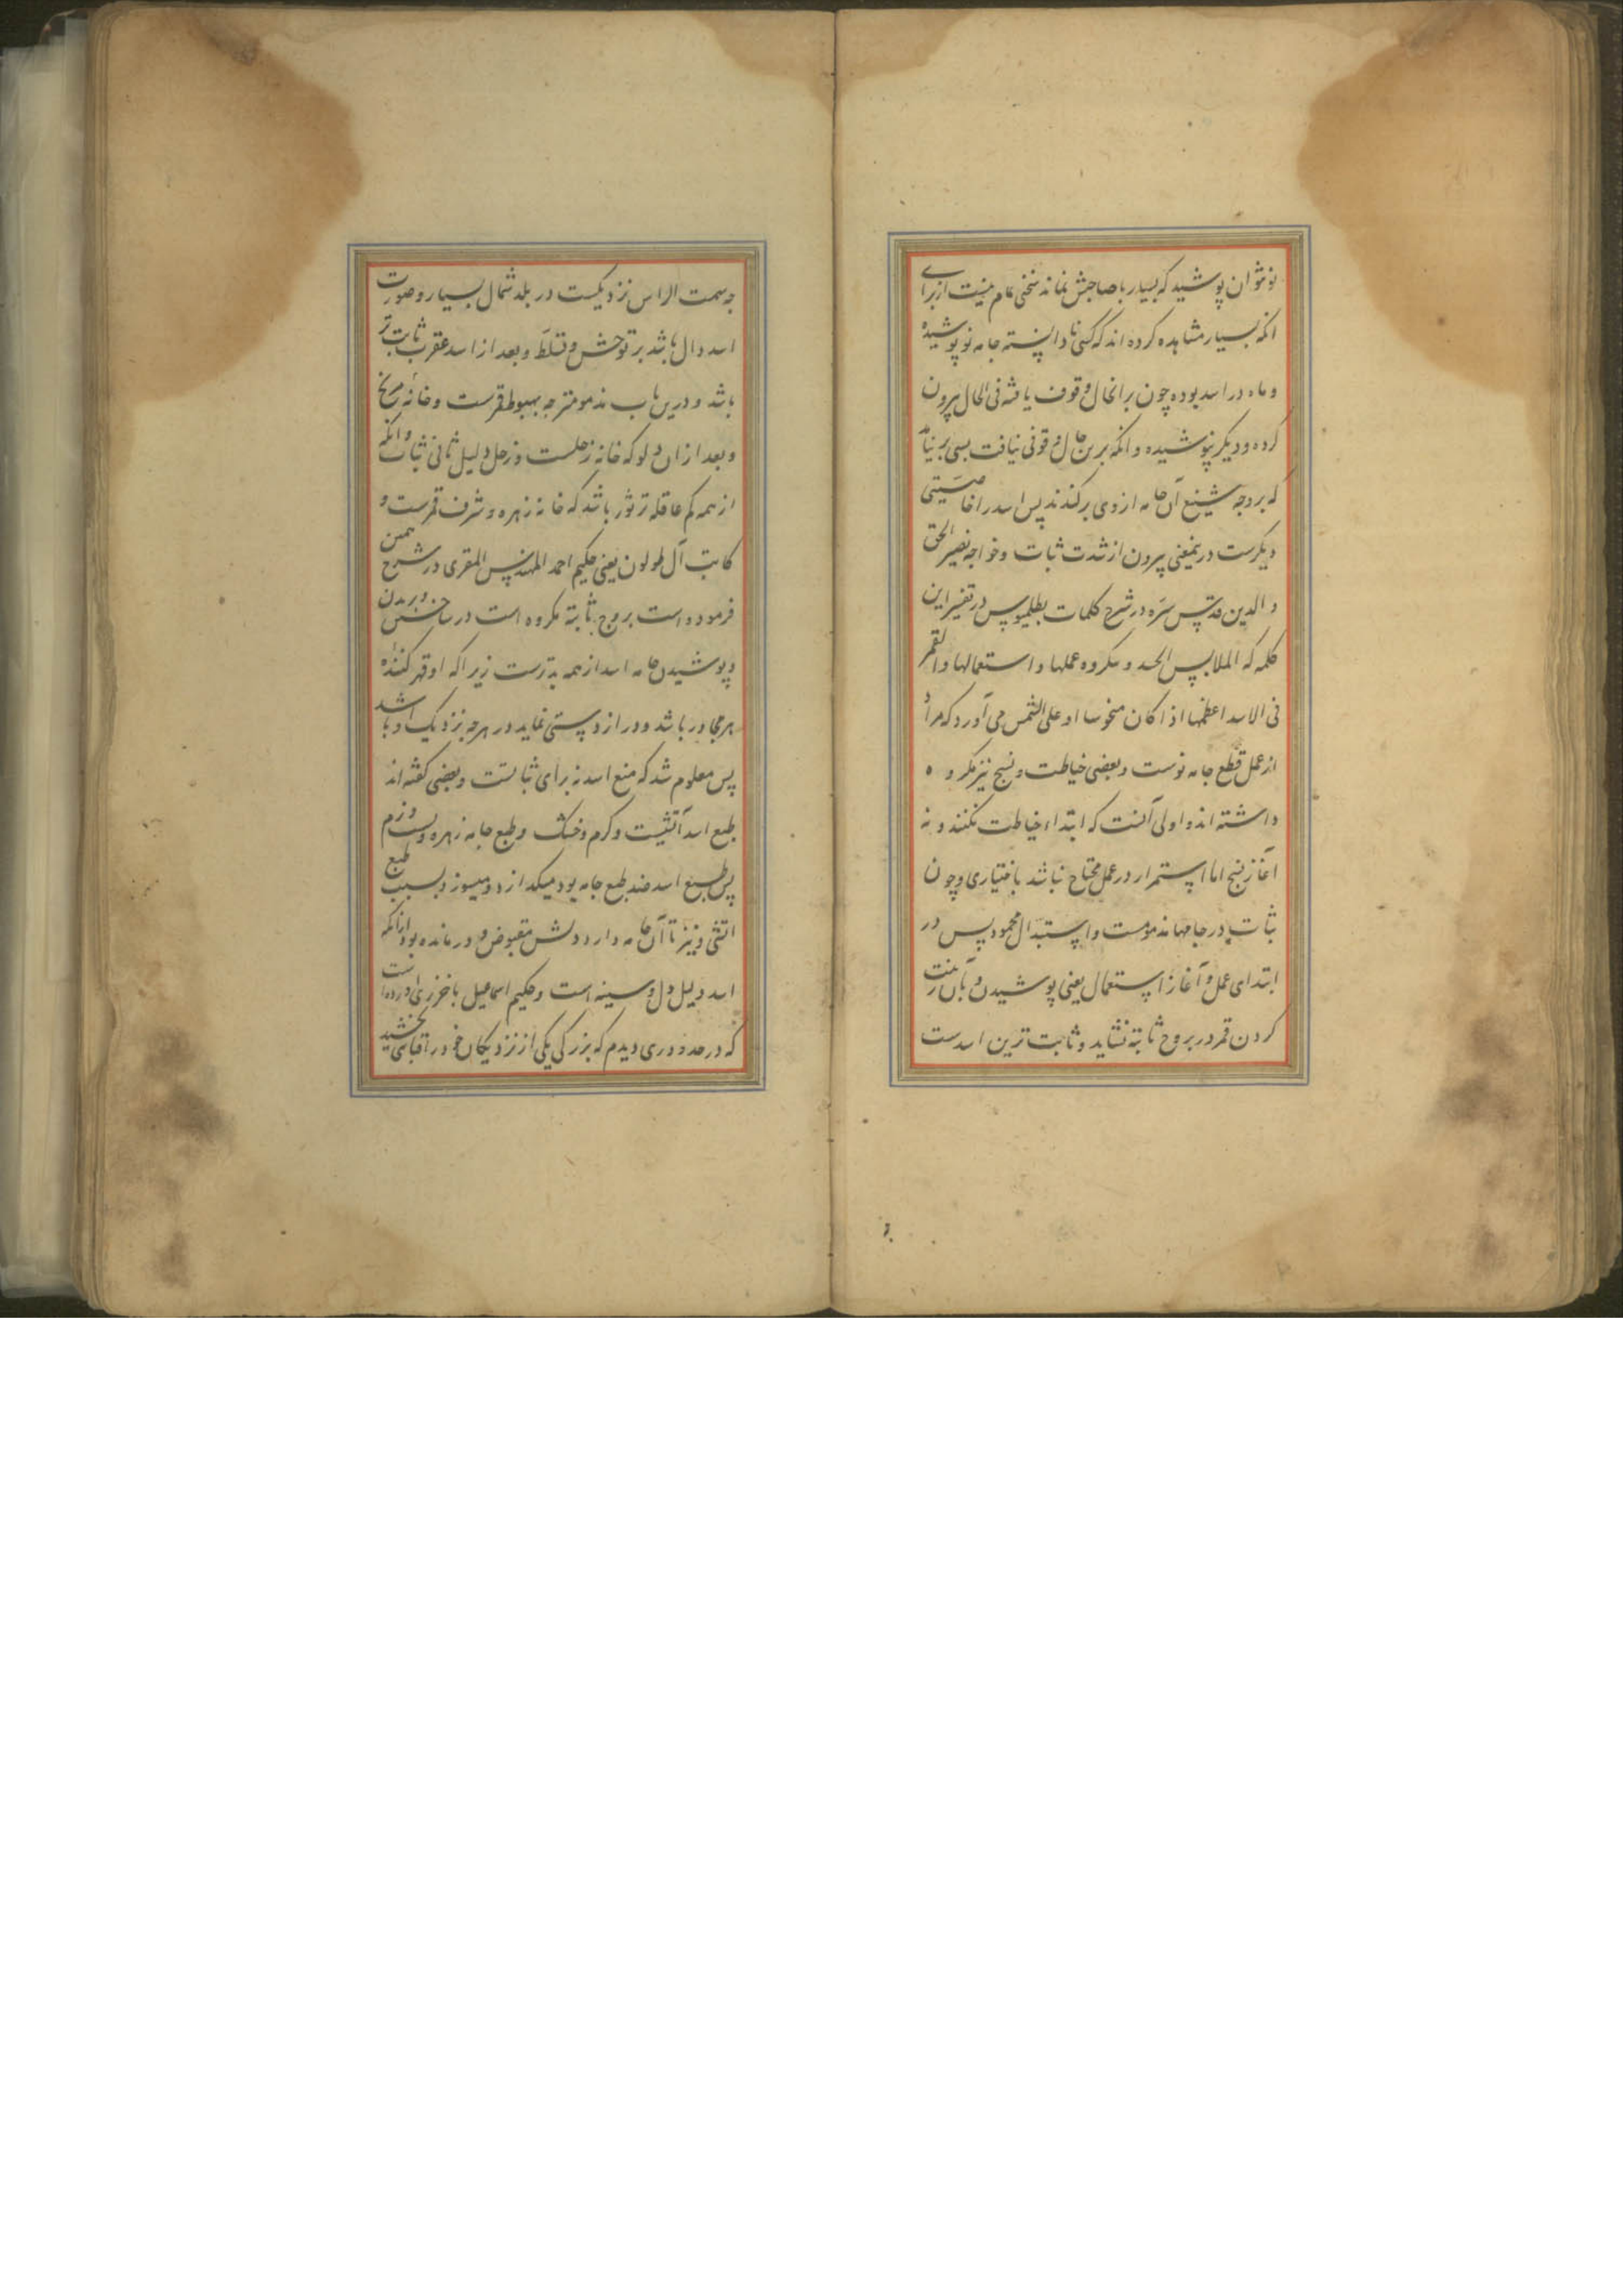 نو نتوان پوشید که بسیار با صاحبش نماند سخنی تمام نیست از برای
انکه بسیار مشاهده کرده اند که کسی نا دانسته جامه نو پوشیده
و ماه در اسد بوده چون بر انحال وقوف یافته فی الحال بیرون
کرده و دیگر نپوشیده و انکه برین حال وقوفی نیافت بسی بر نیامد
که بر وجه شنیع آن جامه از وی برکندند پس اسد را خاصیتی
دیگرست درینمعنی بیرون از شدت ثبات و خواجه نصیر الحق
و الدین قدس سره در شرح کلمات بطلمیوس در تفسیر این
کلمه که الملابس الجدد مکروه عملها و استعمالها و القمر
فی الاسد اعظمها اذا کان منحوسا او علی الشمس می آورد که مراد
از عمل قطع جامه نوست و بعضی خیاطت و نسج نیز مکروه
داشته اند و اولی آنست که ابتداء خیاطت نکنند و نه
آغاز نسج اما استمرار در عمل محتاج نباشد باختیاری و چون
ثبات در جامها مذمومست و استبدال محمود پس در
ابتدای عمل و آغاز استعمال یعنی پوشیدن و بآن زینت
کردن قمر در بروج ثابته نشاید و ثابت ترین اسدست
چه سمت الراس نزدیکست در بلد شمال بسیار و صورت
اسد دال باشد بر توحش و تسلط و بعد از اسد عقرب ثابت تر
باشد و درین باب مذمومتر چه هبوط قمرست و خانه مریخ
و بعد از ان دلو که خانه زحلست و زحل دلیل ثانی ثبات و انکه
از همه کم عاقله تر ثور باشد که خانه زهره و شرف قمرست و
کاتب آل طولون یعنی حکیم احمد المهندس المقری در شرح همین
فرموده است بروج ثابته مکروه است در ساختن و بریدن
و پوشیدن جامه اسد از همه بدترست زیرا که او قهر کننده
هر مجاور باشد و دراز دستی نماید در هرچه نزدیک او باشد
پس معلوم شد که منع اسد نه برای ثباتست و بعضی گفته اند
طبع اسد آتشیست و کرم و خشک و طبع جامه زهره و نرم
پس طبع اسد ضد طبع جامه بود میکدازد و میسوزد بسبب طبع
اتشی و نیز تا آن جامه دارد دلش مقبوض و درمانده بود ازانکه
اسد دلیل دل و سینه است و حکیم اسماعیل باخرزی اورده است
که در حدود ری دیدم که بزرکی یکی از نزدیکان خود را قبائی بخشید